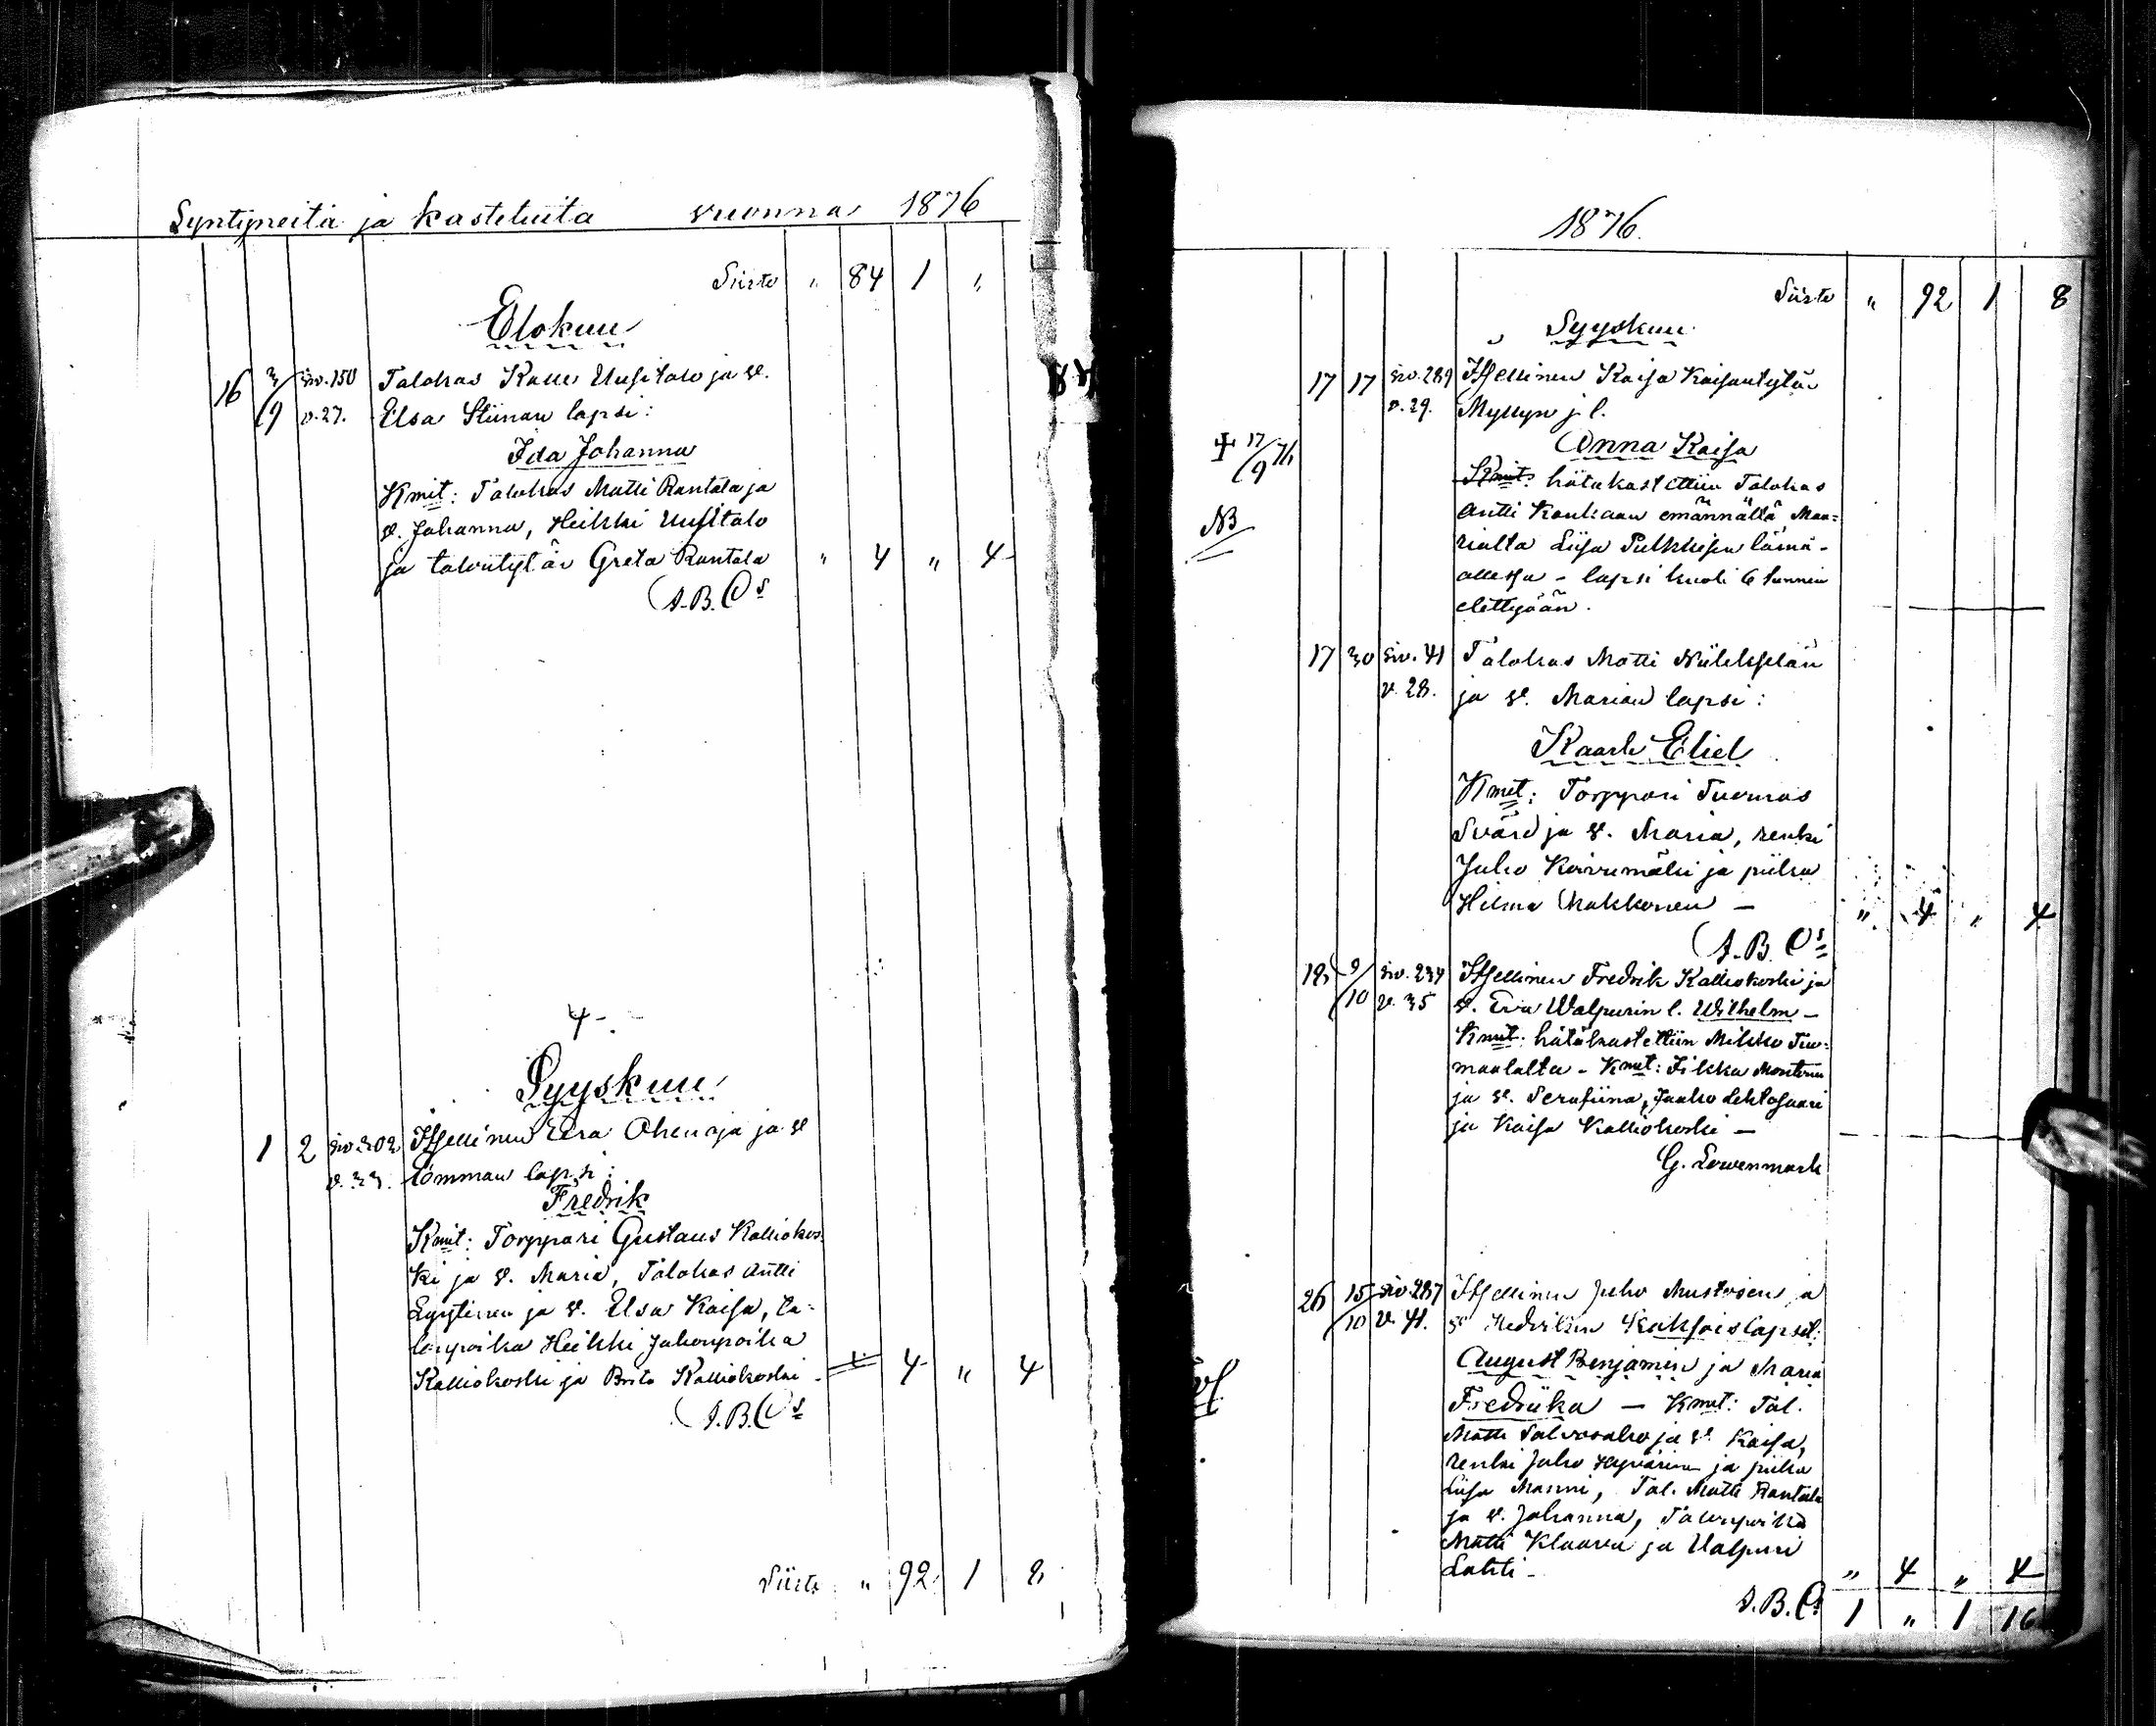 Syntyneitä ja kastetuita vuonna 1876
Siirto " 84 1 "
Elokuu
16 3/9 siv. 150 Talokas Kalle Uusitalo ja v.
v. 27. Elsa Stiinan lapsi:
Ida Johanna
Kmit: Talokas Matti Rantala ja
v. Johanna, Heikki Uusitalo
ja talontytär Greta Rantala " 4 " 4
A.B.Cs
4
Syyskuu
1 2 siv. 302 Itsellinen Eera ja v
v. 33. lapsi:
Fredrik
Kmit: Torppari Gustaus Kalliokos
ki ja v. Maria, Talokas Antti
Lyytinen ja v. Elsa Kaisa, ta-
lonpoika Heikki Juhonpoika
Kalliokoski ja Brita Kalliokoski 4 " 4
A.B.Cs
Siirto " 92 1 8
1876.
Siirto " 92 1 8
Syyskuu
17 17 siv. 289 Itsellinen Kaisa Kaisantytär
v. 29. Myllyn j. l.
Anna Kaisa
✝ 17/9 76
Kmit: hätäkastettiin Talokas
Antti emännältä, Maa-
NB
rialta Liisa Pulkkisen läsnä-
ollessa - lapsi kuoli 6 tunnin
elettyään.
17 30 siv. 41 Talokas Matti
v. 28. ja v. Marian lapsi:
Kaarle Eliel
Kmit: Torppari Tuomas
Svärd ja v. Maria, renki
Juho Koivumäki ja piika
Hilma Makkonen - " 4 " 4
A.B.Cs
18 9/10 siv. 234 Itsellinen Fredrik Kalliokoski ja
v. 35 v. Eva Walpurin l. Wilhelm -
Kmit: hätäkastettiin Mikko Tuo-
maalalta - Kmit: Iikka Montonen
ja v. Serafiina, Jaako Lehtosaari
ja Kaisa Kalliokoski -
G. Lowenmark
26 15/10 siv. 287 Itsellinen Juho Mustosen ja
v. 41. v Hedvikin Kaksoislapset:
August Benjamin ja Maria
Fredriika - Kmit: Tal.
Matti Salvosalo ja v. Kaisa,
renki Juho Hyvärinen ja piika
Liisa Manni, Tal. Matti Rantala
ja v. Johanna, Talonpoika
Matti ja Valpuri
Lahti - " 4 " 4
A.B.Cs 1 " 1 16